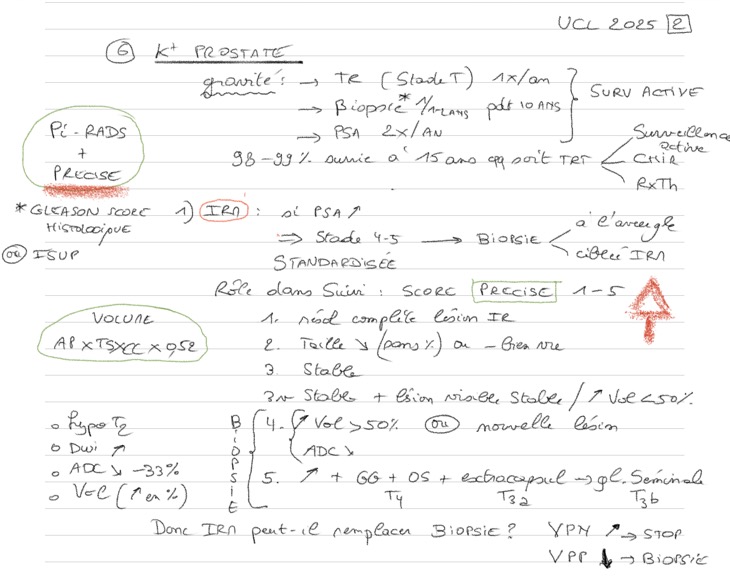 UCL 2025 2
6 K+ PROSTATE
gravité : → TR (Stade T) 1x/an
→ Biopsie* 1/1-2ANS pdt 10 ANS
→ PSA 2x/AN
SURV ACTIVE
98-99% survie à 15 ans qq soit TRT
Surveillance active
CHIR
RxTh
Pi-RADS
+
PRECISE
* GLEASON SCORE
HISTOLOGIQUE
ou ISUP
1) IRM : si PSA ↗
⇒ Stade 4-5 → BIOPSIE
à l'aveugle
ciblée IRM
STANDARDISÉE
Rôle dans Suivi : SCORE PRECISE 1-5
VOLUME
AP x TS x CC x 0,52
1. résol complète lésion IR
2. Taille ↘ (dans %) ou - bien vue
3. Stable
3v Stable + lésion visible Stable / ↗ Vol < 50%
BIOPSIE
4. ↗ Vol > 50% ou nouvelle lésion
ADC ↘
5. ↗ + GG + OS + extracapsul → gl. Séminale
T4 T3a T3b
o hypo T2
o DWI ↗
o ADC ↘ -33%
o Vol (↗ en %)
Donc IRM peut-il remplacer BIOPSIE ?
VPN ↗ → STOP
VPP ↓ → BIOPSIE